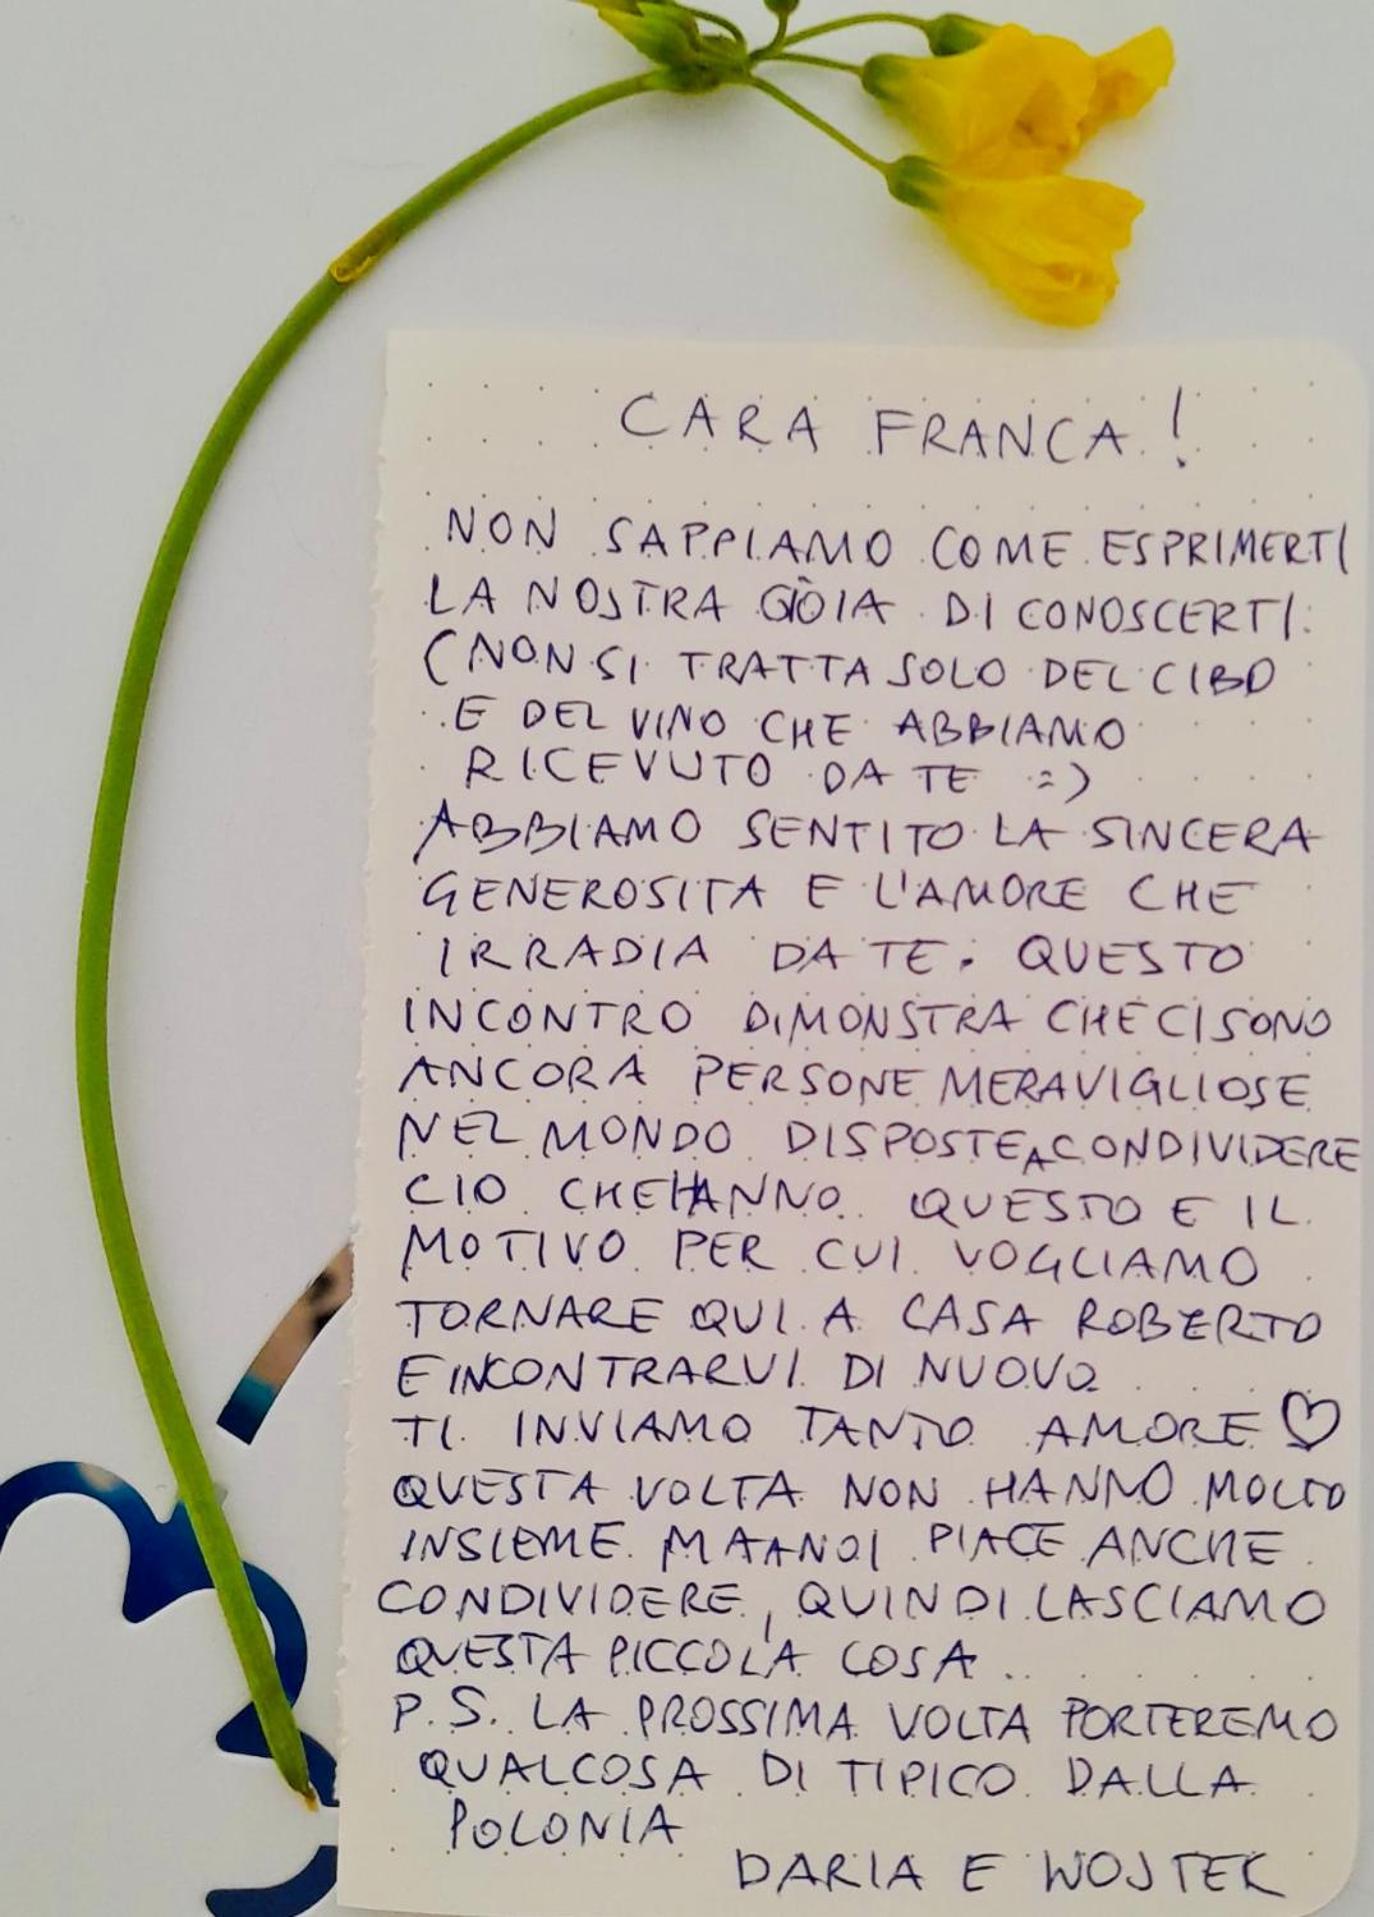 CARA FRANCA!
NON SAPPIAMO COME ESPRIMERTI
LA NOSTRA GIOIA DI CONOSCERTI.
(NON SI TRATTA SOLO DEL CIBO
E DEL VINO CHE ABBIAMO
RICEVUTO DA TE :)
ABBIAMO SENTITO LA SINCERA
GENEROSITA E L'AMORE CHE
IRRADIA DA TE. QUESTO
INCONTRO DIMONSTRA CHE CI SONO
ANCORA PERSONE MERAVIGLIOSE
NEL MONDO DISPOSTE A CONDIVIDERE
CIO CHE HANNO. QUESTO E IL
MOTIVO PER CUI VOGLIAMO
TORNARE QUI A CASA ROBERTO
E INCONTRARVI DI NUOVO
TI INVIAMO TANTO AMORE ♡
QUESTA VOLTA NON HANNO MOLTO
INSIEME MA A NOI PIACE ANCHE
CONDIVIDERE, QUINDI LASCIAMO
QUESTA PICCOLA COSA
P.S. LA PROSSIMA VOLTA PORTEREMO
QUALCOSA DI TIPICO DALLA
POLONIA
DARIA E WOJTEK